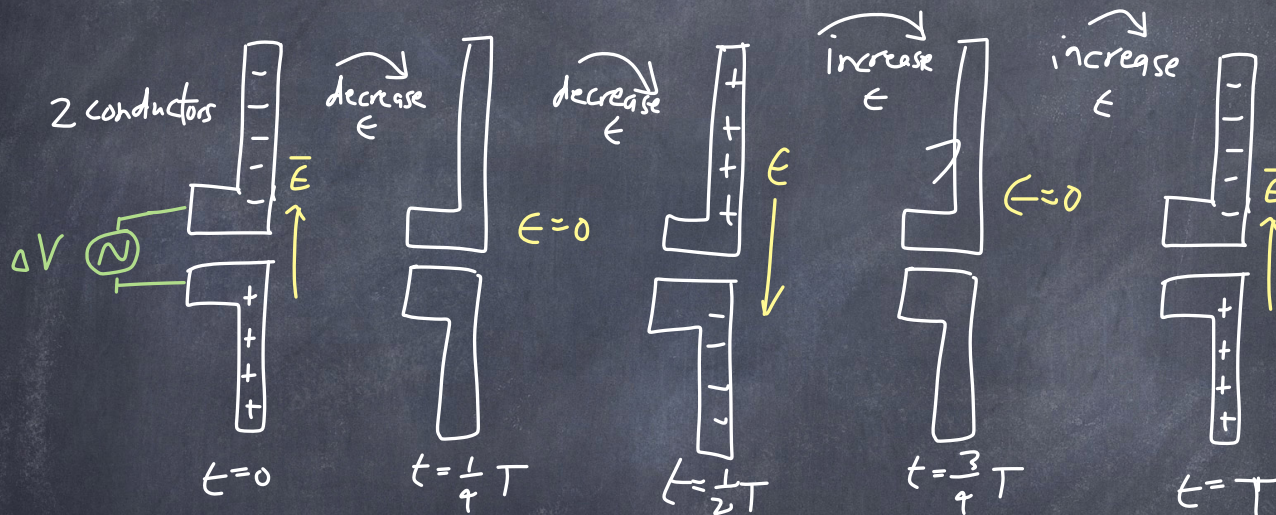 2 conductors
ΔV
- - - - -
+ + + +
Ē
t=0
decrease
E
E=0
t=1/4 T
decrease
E
+ + + +
- - - -
E
t=1/2 T
increase
E
E=0
t=3/4 T
increase
E
- - - - -
+ + + +
E
t=T